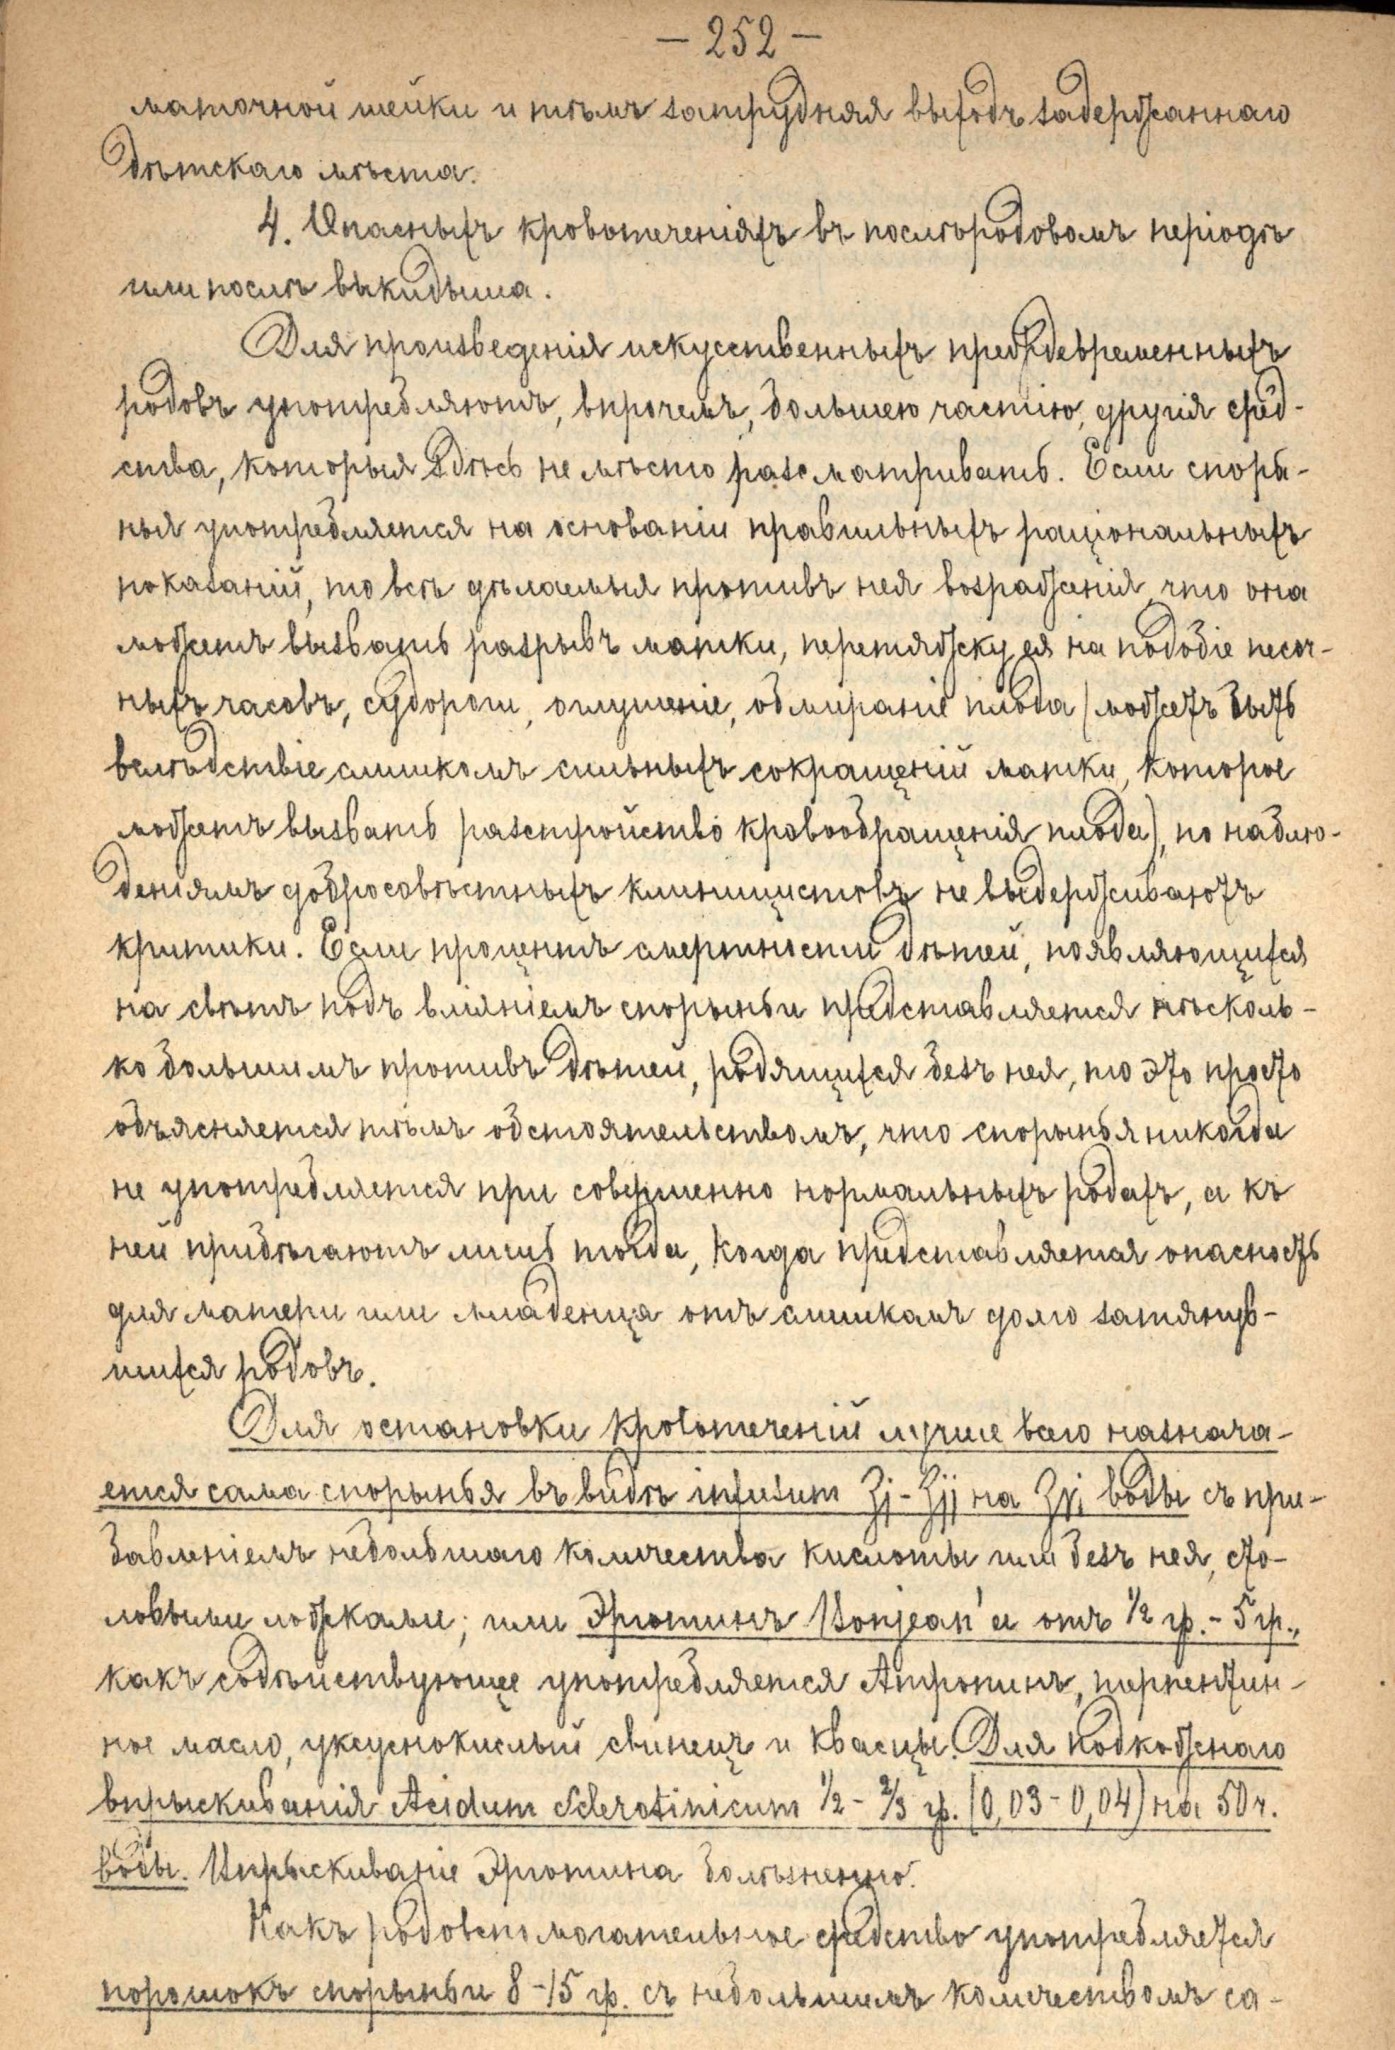 — 252 —
маточной шейки и тѣмъ затрудняя выходъ задержаннаго
дѣтскаго мѣста.
4. Опасныхъ кровотеченіяхъ въ послѣродовомъ періодѣ
или послѣ выкидыша.
Для произведенія искусственныхъ преждевременныхъ
родовъ употребляютъ, впрочемъ, большею частію, другія сред-
ства, которыя здѣсь не мѣсто разсматривать. Если споры-
нья употребляется на основаніи правильныхъ раціональныхъ
показаній, то всѣ дѣлаемыя противъ нея возраженія, что она
можетъ вызвать разрывъ матки, перетяжку ея на подобіе песоч-
ныхъ часовъ, судороги, оглушеніе, обмираніе плода (можетъ быть
вслѣдствіе слишкомъ сильныхъ сокращеній матки, которое
можетъ вызвать разстройство кровообращенія плода), по наблю-
деніямъ добросовѣстныхъ клиницистовъ не выдерживаютъ
критики. Если процентъ смертности дѣтей, появляющихся
на свѣтъ подъ вліяніемъ спорыньи представляется нѣсколь-
ко большимъ противъ дѣтей, родящихся безъ нея, то это просто
объясняется тѣмъ обстоятельствомъ, что спорынья никогда
не употребляется при совершенно нормальныхъ родахъ, а къ
ней прибѣгаютъ лишь тогда, когда представляется опасность
для матери или младенца отъ слишкамъ долго затянув-
шихся родовъ.
Для остановки кровотеченій лучше всего назнача-
ется сама спорынья въ видѣ infusum ʒj - ʒjj на ℥vj воды съ при-
бавленіемъ небольшаго количества кислоты или безъ нея, сто-
ловыми ложками; или Эрготинъ Bonjean'а отъ ½ гр. - 5 гр.,
какъ содѣйствующее употребляется Атропинъ, терпентин-
ное масло, уксуснокислый свинецъ и квасцы. Для подкожнаго
впрыскиванія Acidum Sclerotinicum ½ - ⅔ гр. (0,03 - 0,04) на 50 ч.
воды. Впрыскиваніе Эрготина болѣзненно.
Какъ родовспомогательное средство употребляется
порошокъ спорыньи 8 - 15 гр. съ небольшимъ количествомъ са-